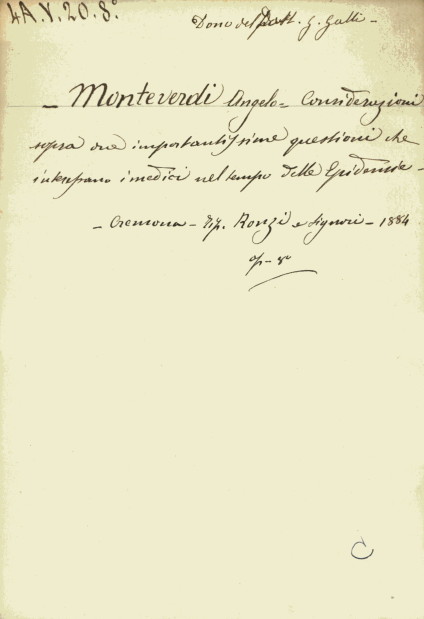 4A.Y.20.8°
Dono del Dott. G. Galli -
- Monteverdi Angelo - Considerazioni
sopra due importantissime questioni che
interessano i medici nel tempo delle Epidemie -
- Cremona - Tip. Ronzi e Signori - 1884
op - 8°
C